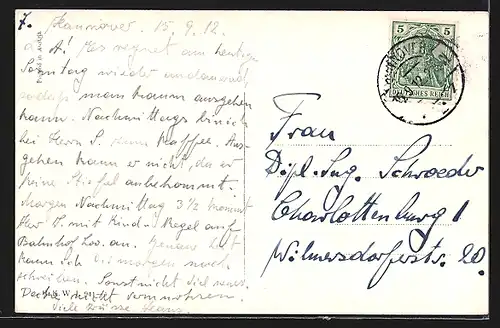 7. Hannover 15.9.12.
d. A! Es regnet am heutigen
Sonntag wieder andauernd
sodaß man kaum ausgehen
kann. Nachmittags bin ich
bei Herrn S. zum Kaffee. Aus-
gehen kann er nicht, da er
keine Stiefel anbekommt.
Morgen Nachmittag 3½ kommt
Herr V. mit Kind + Kegel auf
Bahnhof an. Genaue Zeit
kann ich Dir morgen noch
schreiben. Sonst nicht viel neues.
Decke nicht
Viele Grüsse Hans.
5 5
HANNOVER
DEUTSCHES REICH
Frau
Dipl. Ing. Schroeder
Charlottenburg 1
Wilmersdorferstr. 20.